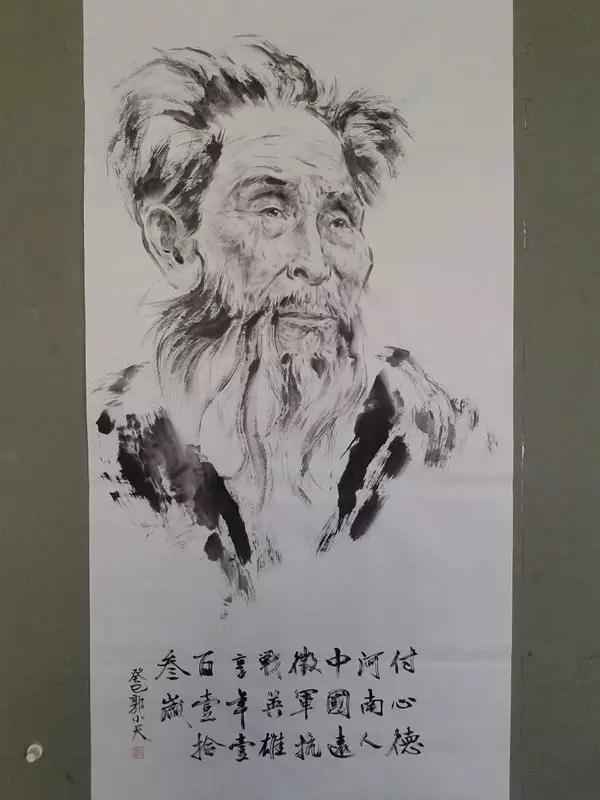 付心德
河南人
中國遠
徵軍抗
戰英雄
享年壹
百壹拾
叁歲
癸巳郭小天